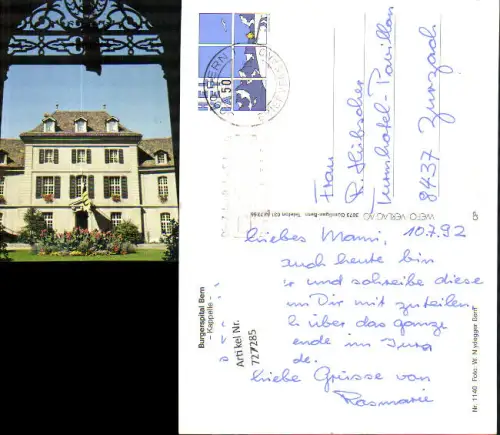 HELVETIA
50
BERN
Frau
R. Hübscher
Turmhotel-Pavillon
8437 Zurzach
WEFO VERLAG AG 3073 Gümligen-Bern Telefon 031
Liebes Mami, 10.7.92
auch heute bin
und schreibe diese
um Dir mit zuteilen
über das ganze
ende im Jura
de.
Liebe Grüsse von
Rosmarie
Burgerspital Bern
- Kappelle -
Artikel Nr.
727285
Nr. 1140 Foto: W. Nydegger Bern